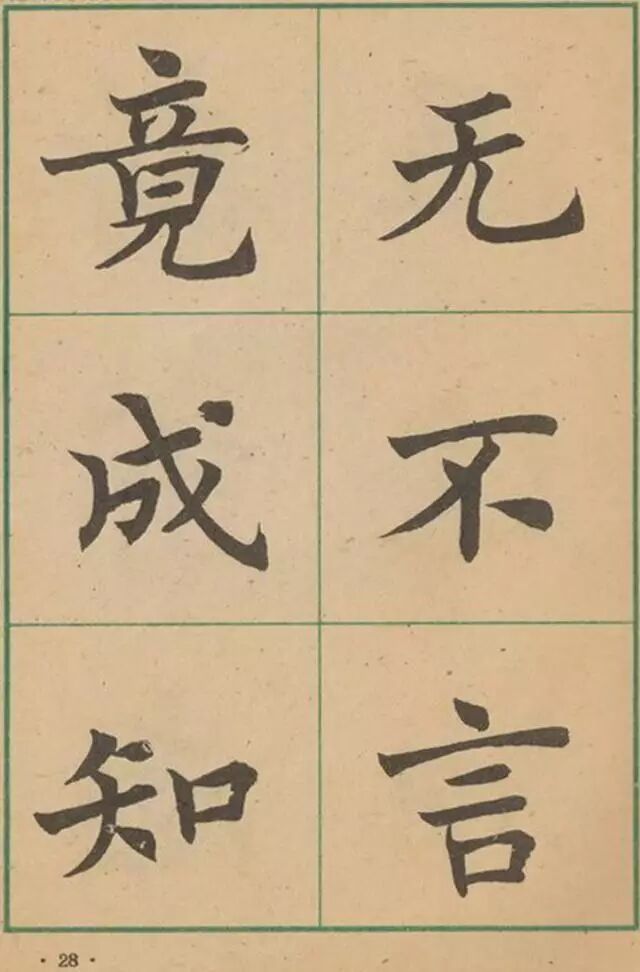 无不言
竟成知
· 28 ·